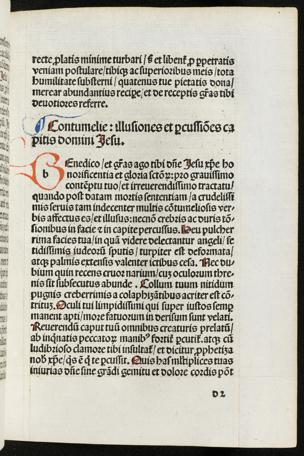 recte platis minime turbari / s et libent p ppetratis
veniam postulare / tibiqz ac superioribus meis / tota
humilitate substerni / quatenus tue pietatis dona /
merear abundantius recipe / et de receptis gr̃as tibi
deuotiores referre.
Contumelie : illusiones et pcussiões ca
pitis domini Jesu.
b
BEnedico / et gr̃as ago tibi dñe Jesu xp̃e ho
norificentia et gloria sctoꝝ : pro grauissimo
contẽptu tuo / et irreuerendissimo tractatu /
quando post datam mortis sententiam / a crudelissi
mis seruis tam indecenter multis cõtumeliosis ver
bis affectus es / et illusus : necnõ crebris ac duris tõ
sionibus in facie et in capite percussus. Heu pulcher
rima facies tua / in quã videre delectantur angeli / fe
tidissimis iudeoꝝ sputis / turpiter est deformata /
atqz palmis extensis valenter ictibus cesa. Nec du
bium quin recens cruor narium / cuz oculorum thre
nis sit subsecutus abunde. Collum tuum nitidum
pugnis creberrimis et colaphizãtibus acriter est cõ
tritus. Oculi tui limpidissimi qui super iustos semp
manent apti / more fatuorum in derisum sunt velati.
Reuerendũ caput tuũ omnibus creaturis prelatũ /
ab inqnatis peccatoꝝ manibꝰ fortit pcutit. atqz cũ
ludibrioso clamore tibi insultat / et dicitur pphetiza
nob xp̃e / qs ẽ q te pcussit. Quis has multiplices tuas
iniurias dñe sine grãdi gemitu et dolore cordis põt
D 2